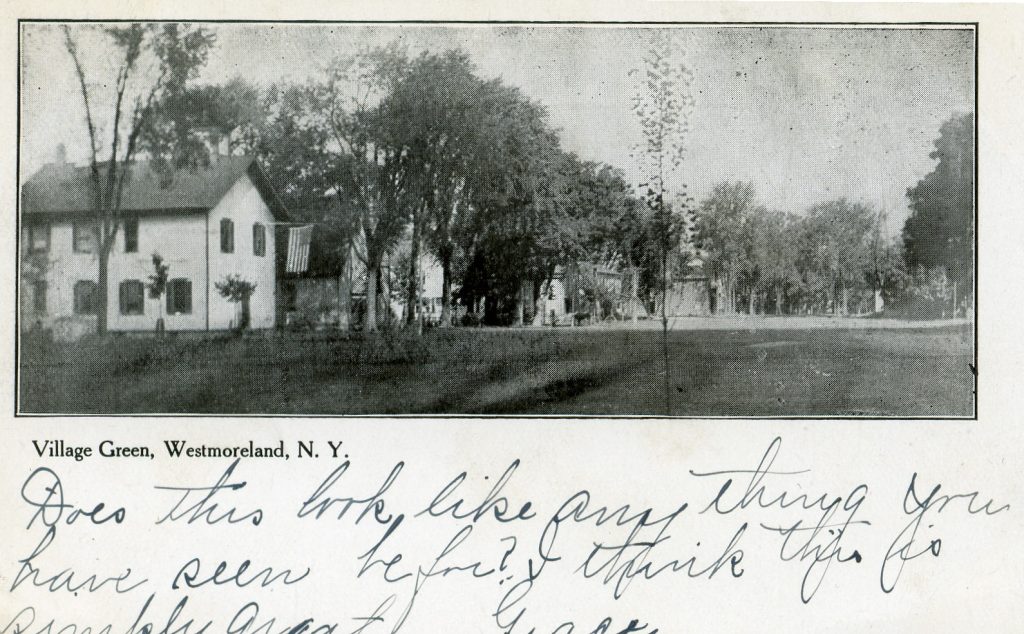 Village Green, Westmoreland, N. Y.
Does this look like any thing you
have seen before? I think this is
simply great Grace